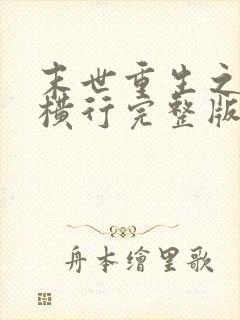 末世重生之
横行完整版
舟本繪里歌